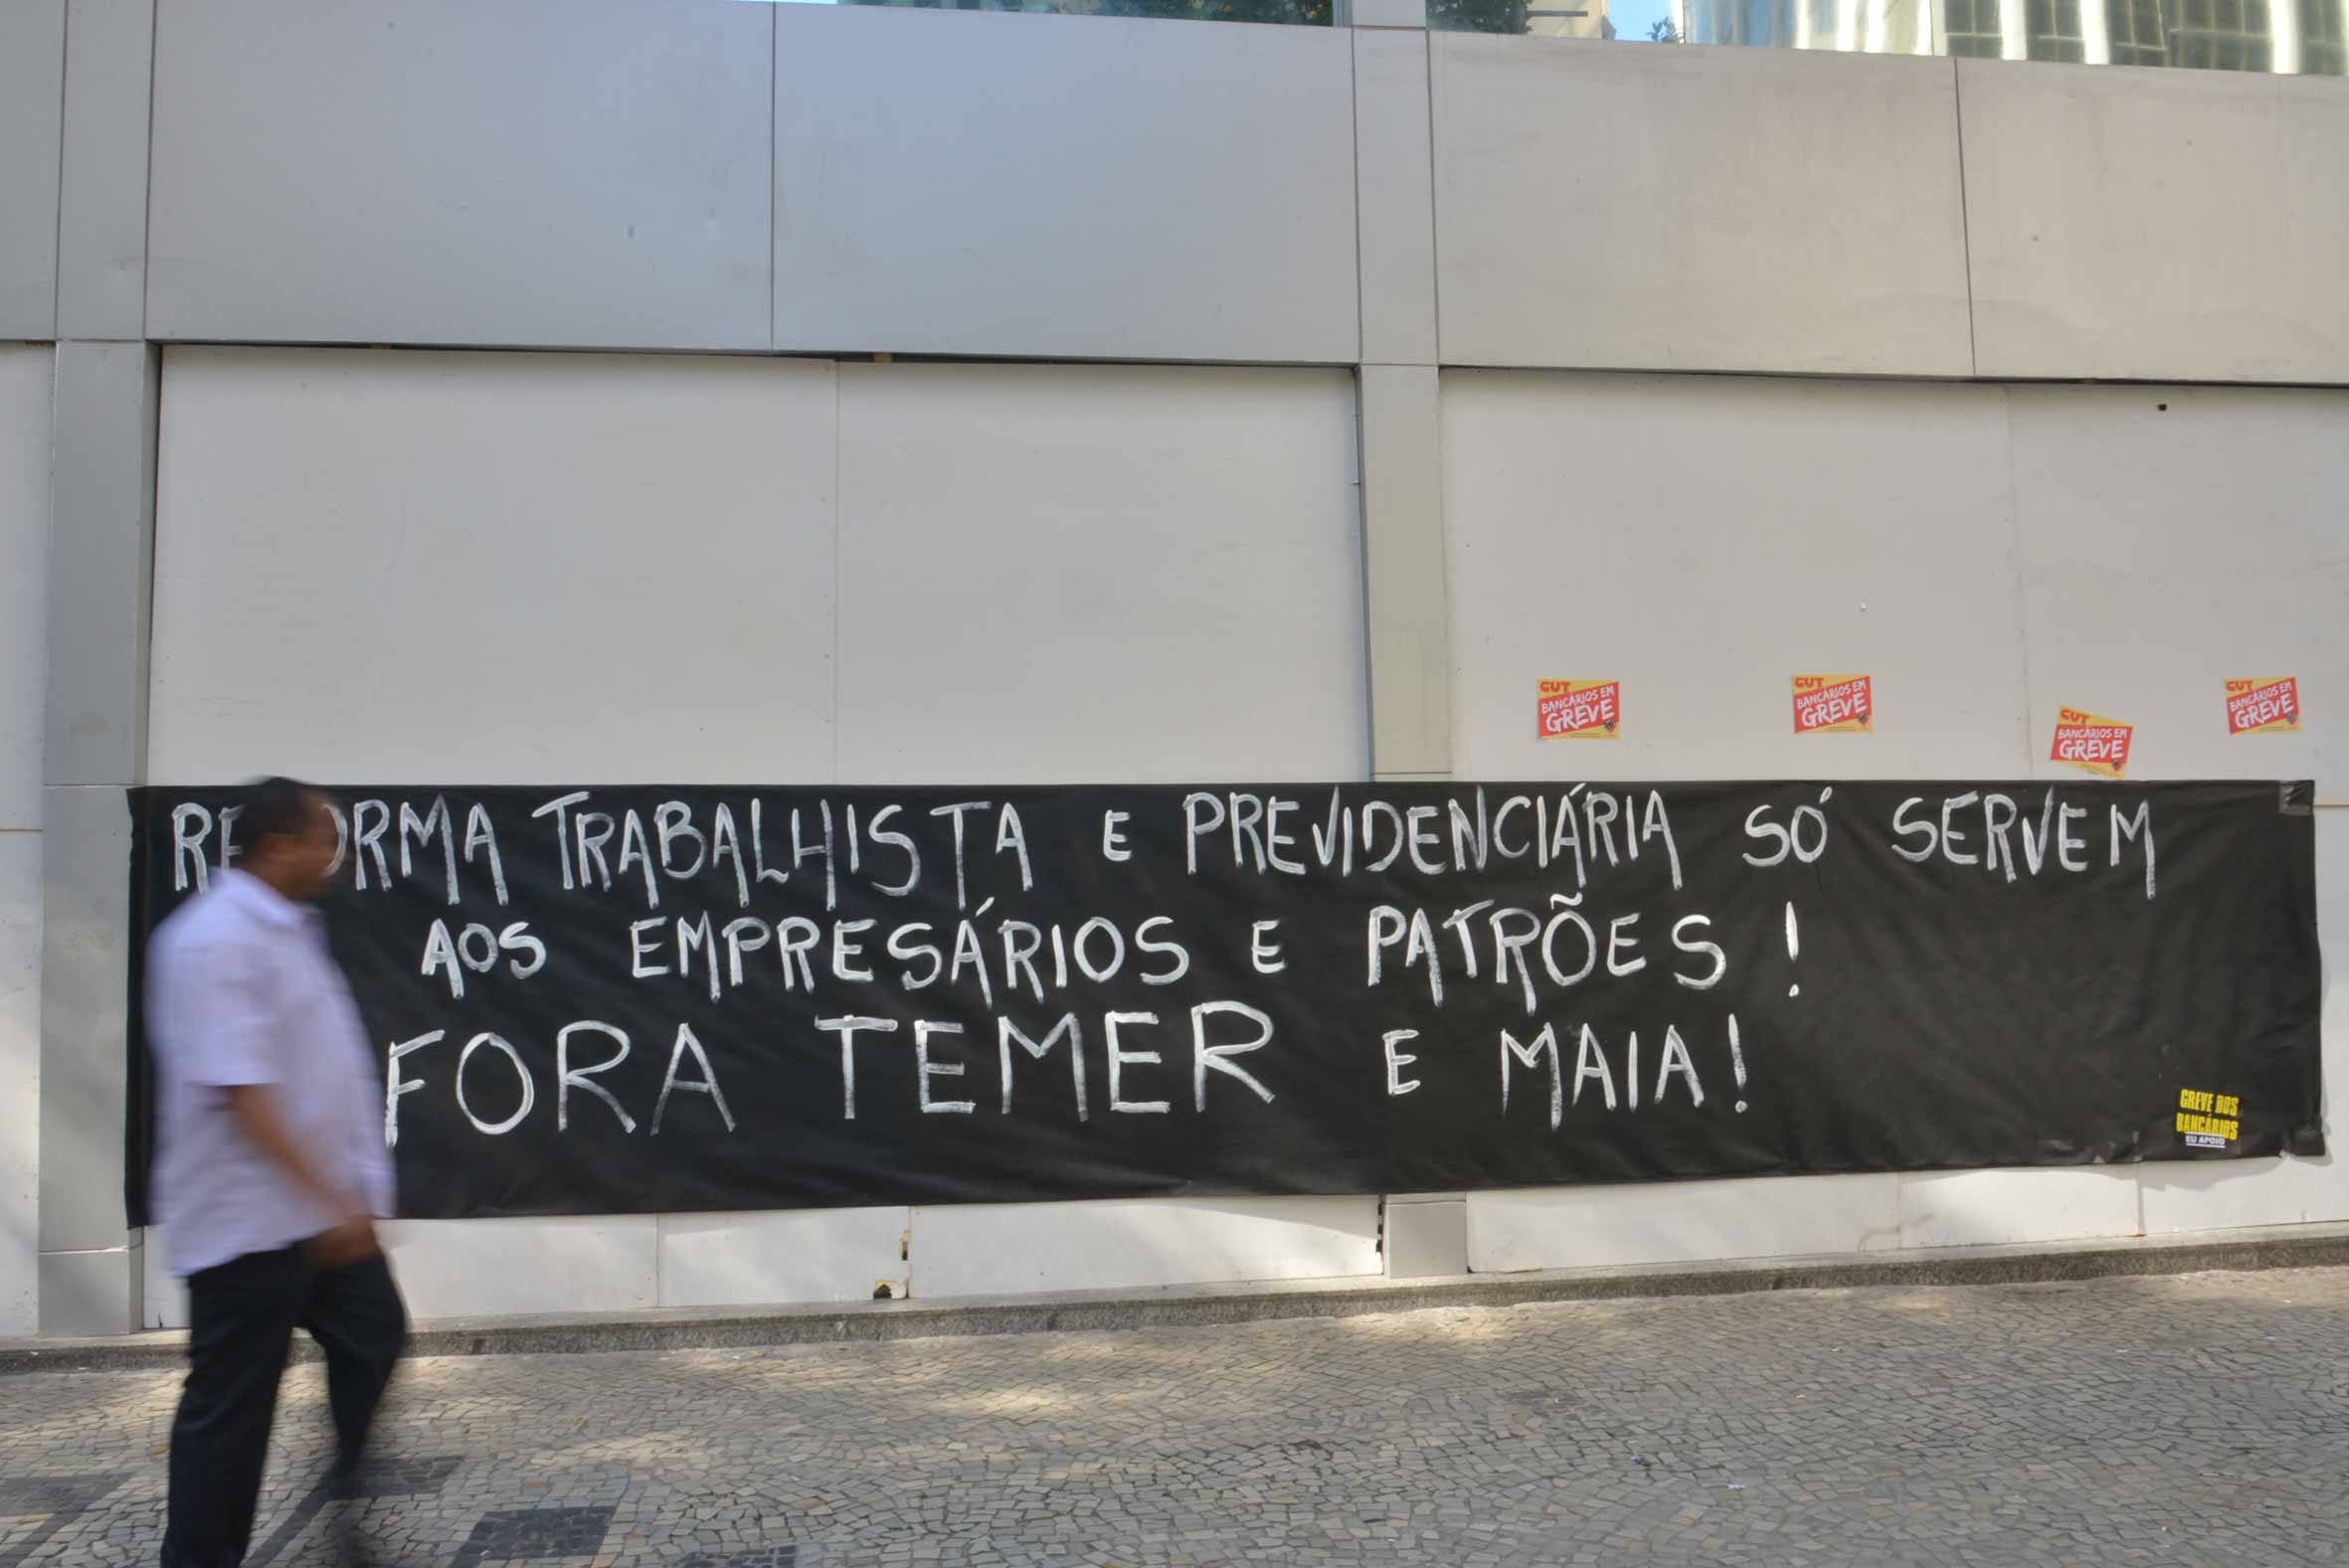 CUT
BANCÁRIOS EM
GREVE
CUT
BANCÁRIOS EM
GREVE
CUT
BANCÁRIOS EM
GREVE
CUT
BANCÁRIOS EM
GREVE
TRABALHISTA E PREVIDENCIÁRIA SÓ SERVEM
AOS EMPRESÁRIOS E PATRÕES !
FORA TEMER E MAIA !
GREVE DOS
BANCÁRIOS
EU APOIO